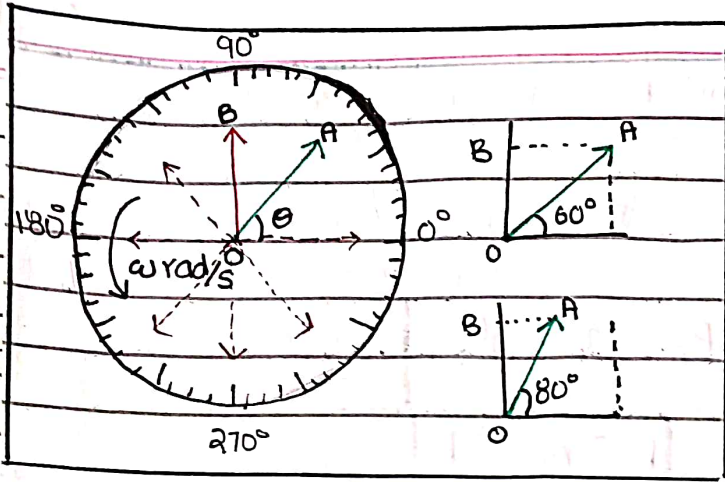 90°
B
A
θ
180°
0°
O
ω rad/s
270°
B
A
60°
O
B
A
80°
O